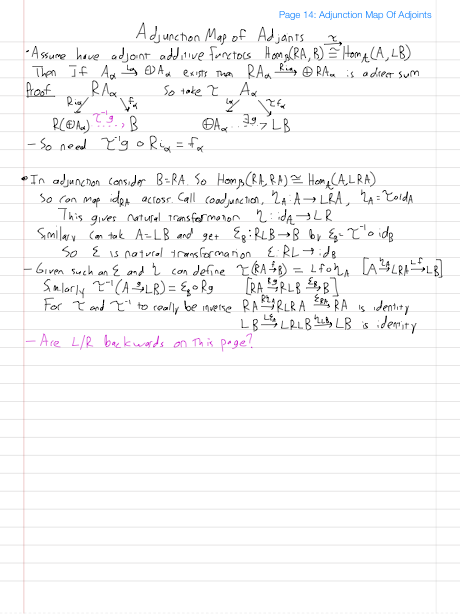 Page 14: Adjunction Map Of Adjoints
Adjunction Map of Adjoints
• Assume have adjoint additive functors Hom_B(RA, B) ≅^τ Hom_A(A, LB)
Then If A_α →^{i_α} ⊕A_α exists then RA_α →^{Ri_α} ⊕RA_α is a direct sum
Proof RA_α So take τ A_α
Ri_α f_α i_α τf_α
R(⊕A_α) τ⁻¹g B ⊕A_α ∃g LB
- So need τ⁻¹g ∘ Ri_α = f_α
• In adjunction consider B=RA. So Hom_B(RA, RA) ≅ Hom_A(A, LRA)
So can map id_RA across. Call coadjunction, η_A: A → LRA, η_A = τ∘id_A
This gives natural transformation η: id_A → LR
Similary can take A=LB and get ε_B: RLB → B by ε_B = τ⁻¹∘id_B
So ε is natural transformation ε: RL → id_B
- Given such an ε and η can define τ(RA →^f B) = Lf∘η_A [A →^{η_A} LRA →^{Lf} LB]
Similarly τ⁻¹(A →^g LB) = ε_B∘Rg [RA →^{Rg} RLB →^{ε_B} B]
For τ and τ⁻¹ to really be inverse RA →^{Rη_A} RLRA →^{ε_RA} RA is identity
LB →^{Lε_B} LRLB →^{η_LB} LB is identity
- Are L/R backwards on this page?